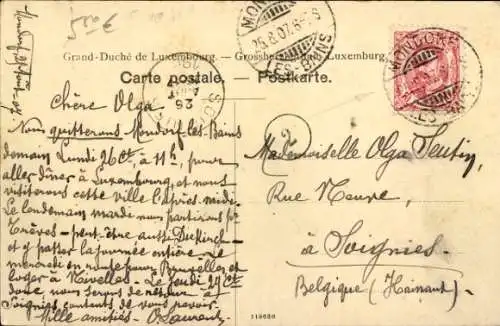 550 €
Mondorf 25 Août 07
MONDORF-LES-BAINS
25.8.07.8-
Grand-Duché de Luxembourg. — Grossherzogtum Luxemburg.
Carte postale. — Postkarte.
MONDORF
LES-BAINS
26
AOUT
Chère Olga
Nous quitterons Mondorf-les-Bains
demain Lundi 26 Ct à 11h, pour
aller dîner à Luxembourg, et nous
visiterons cette ville l'après-midi.
Le lendemain mardi nous partirons pr
Trèves — peut-être aussi Diekirch —
et y passer la journée entière. Le
mercredi en route pour Bruxelles et
loger à Nivelles. Le jeudi 29 Ct
donc nous serons de retour à
Soignies contents de vous revoir.
Mille amitiés — O. Laurent
Mademoiselle Olga
Rue Neuve,
à Soignies
Belgique (Hainaut)